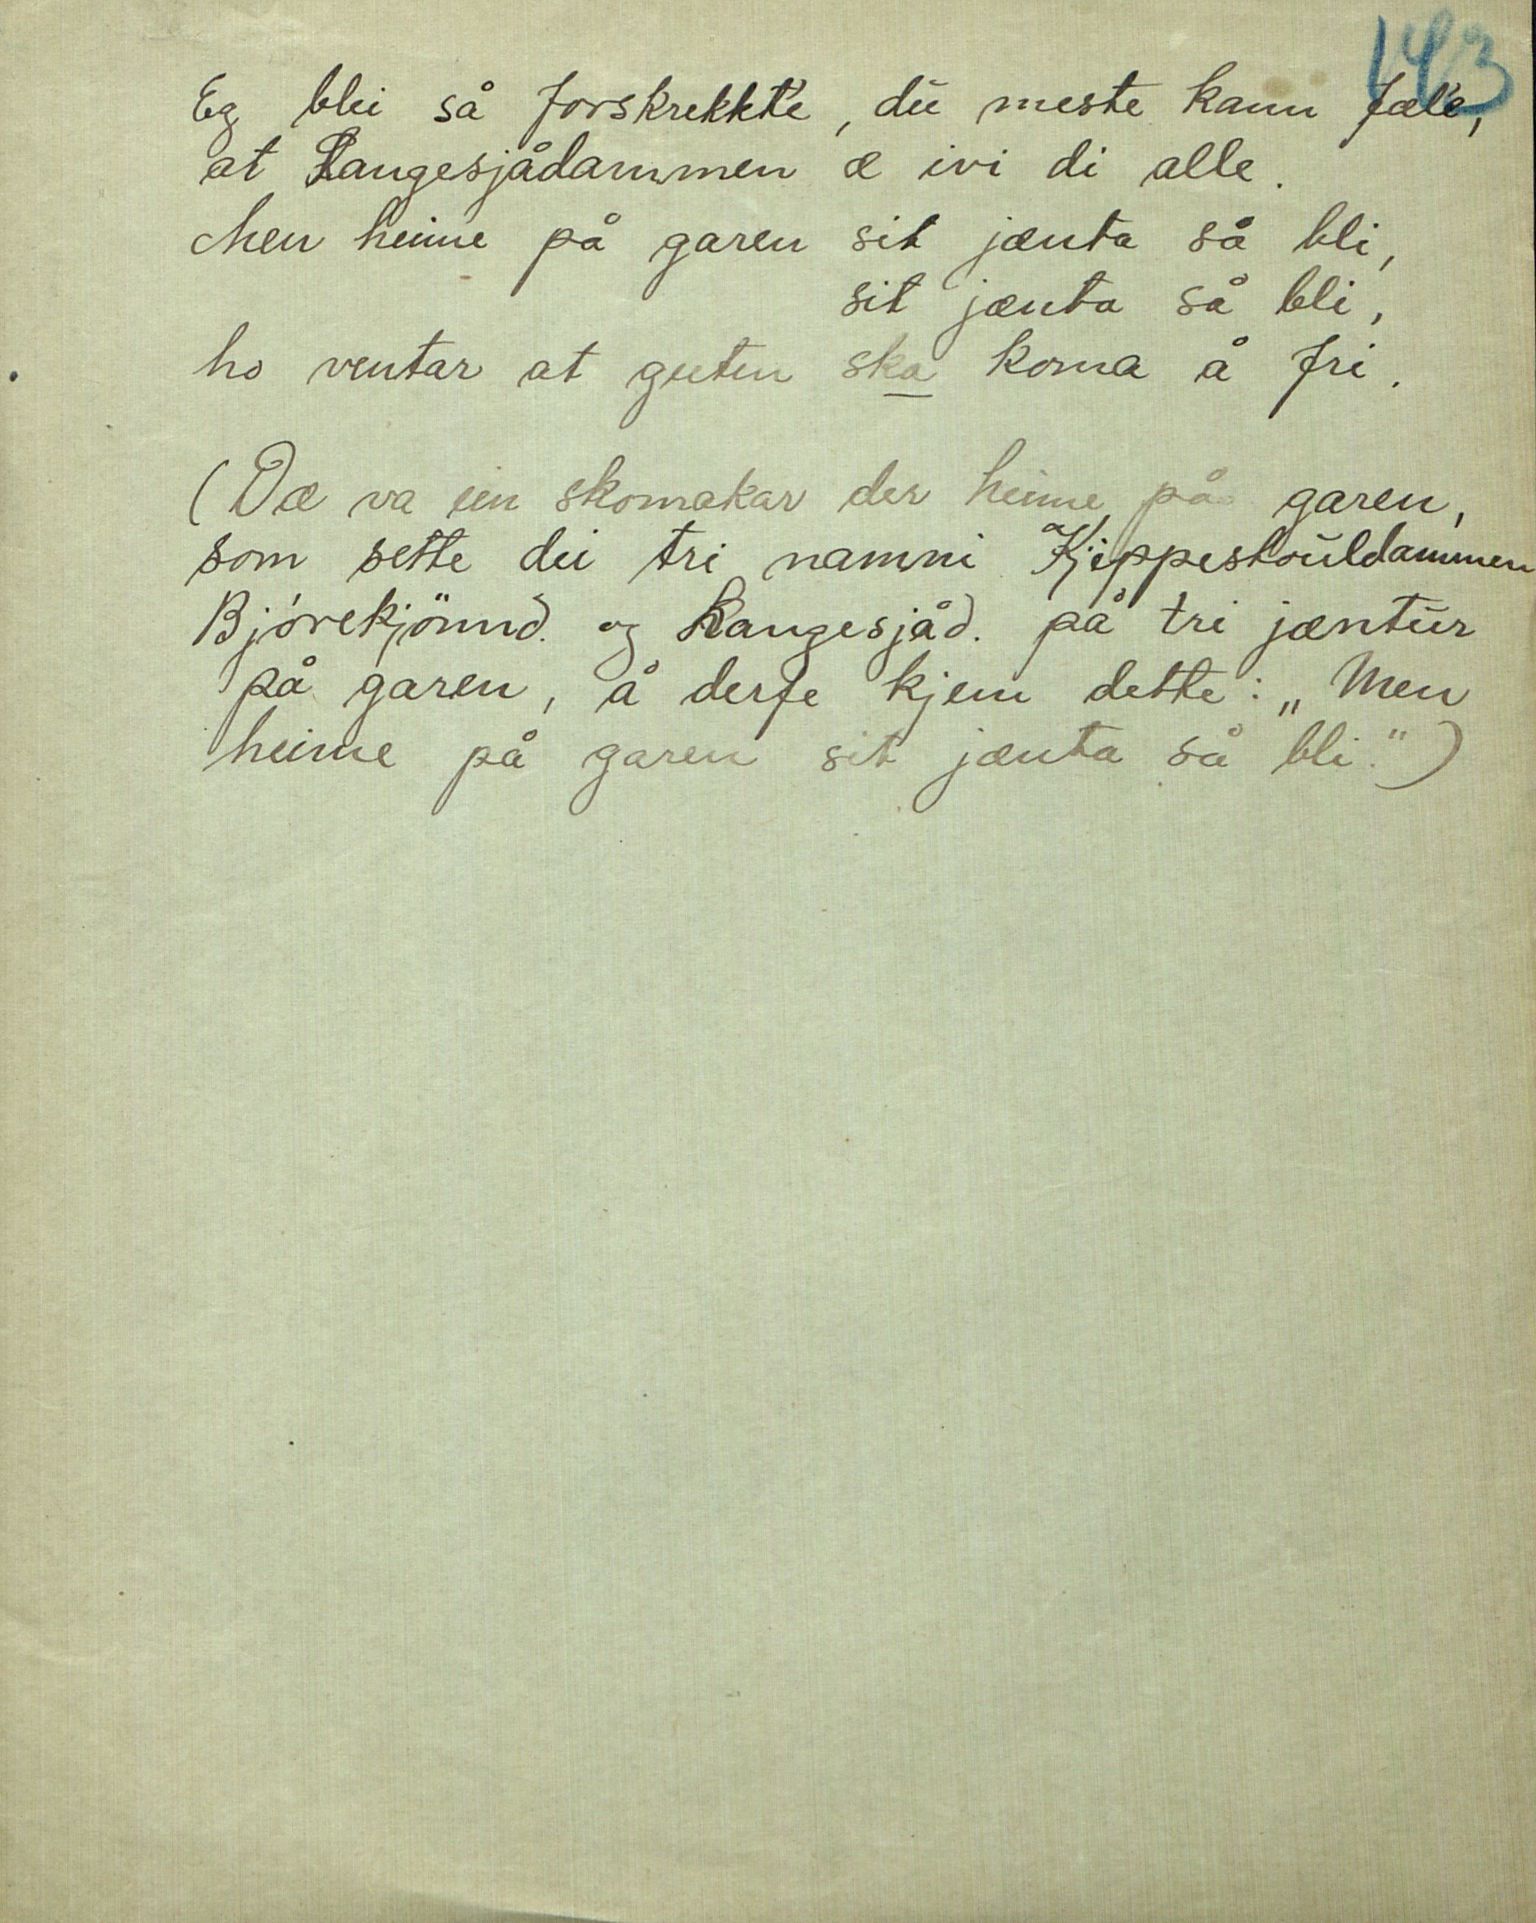 143
Eg blei så forskrekkt'e, dü meste kann fæl'e,
at Langesjådammen æ ivi di alle.
Men heime på garen sit jænta så bli,
sit jænta så bli,
ho ventar at guten ska koma å fri.
(Dæ va ein skomakar der heime på garen,
som sette dei tri namni Kjippeskouldammen
Bjórekjönnd. og Langesjåd. på tri jæntur
på garen, å derfe kjem dette: „Men
heime på garen sit jænta så bli.")